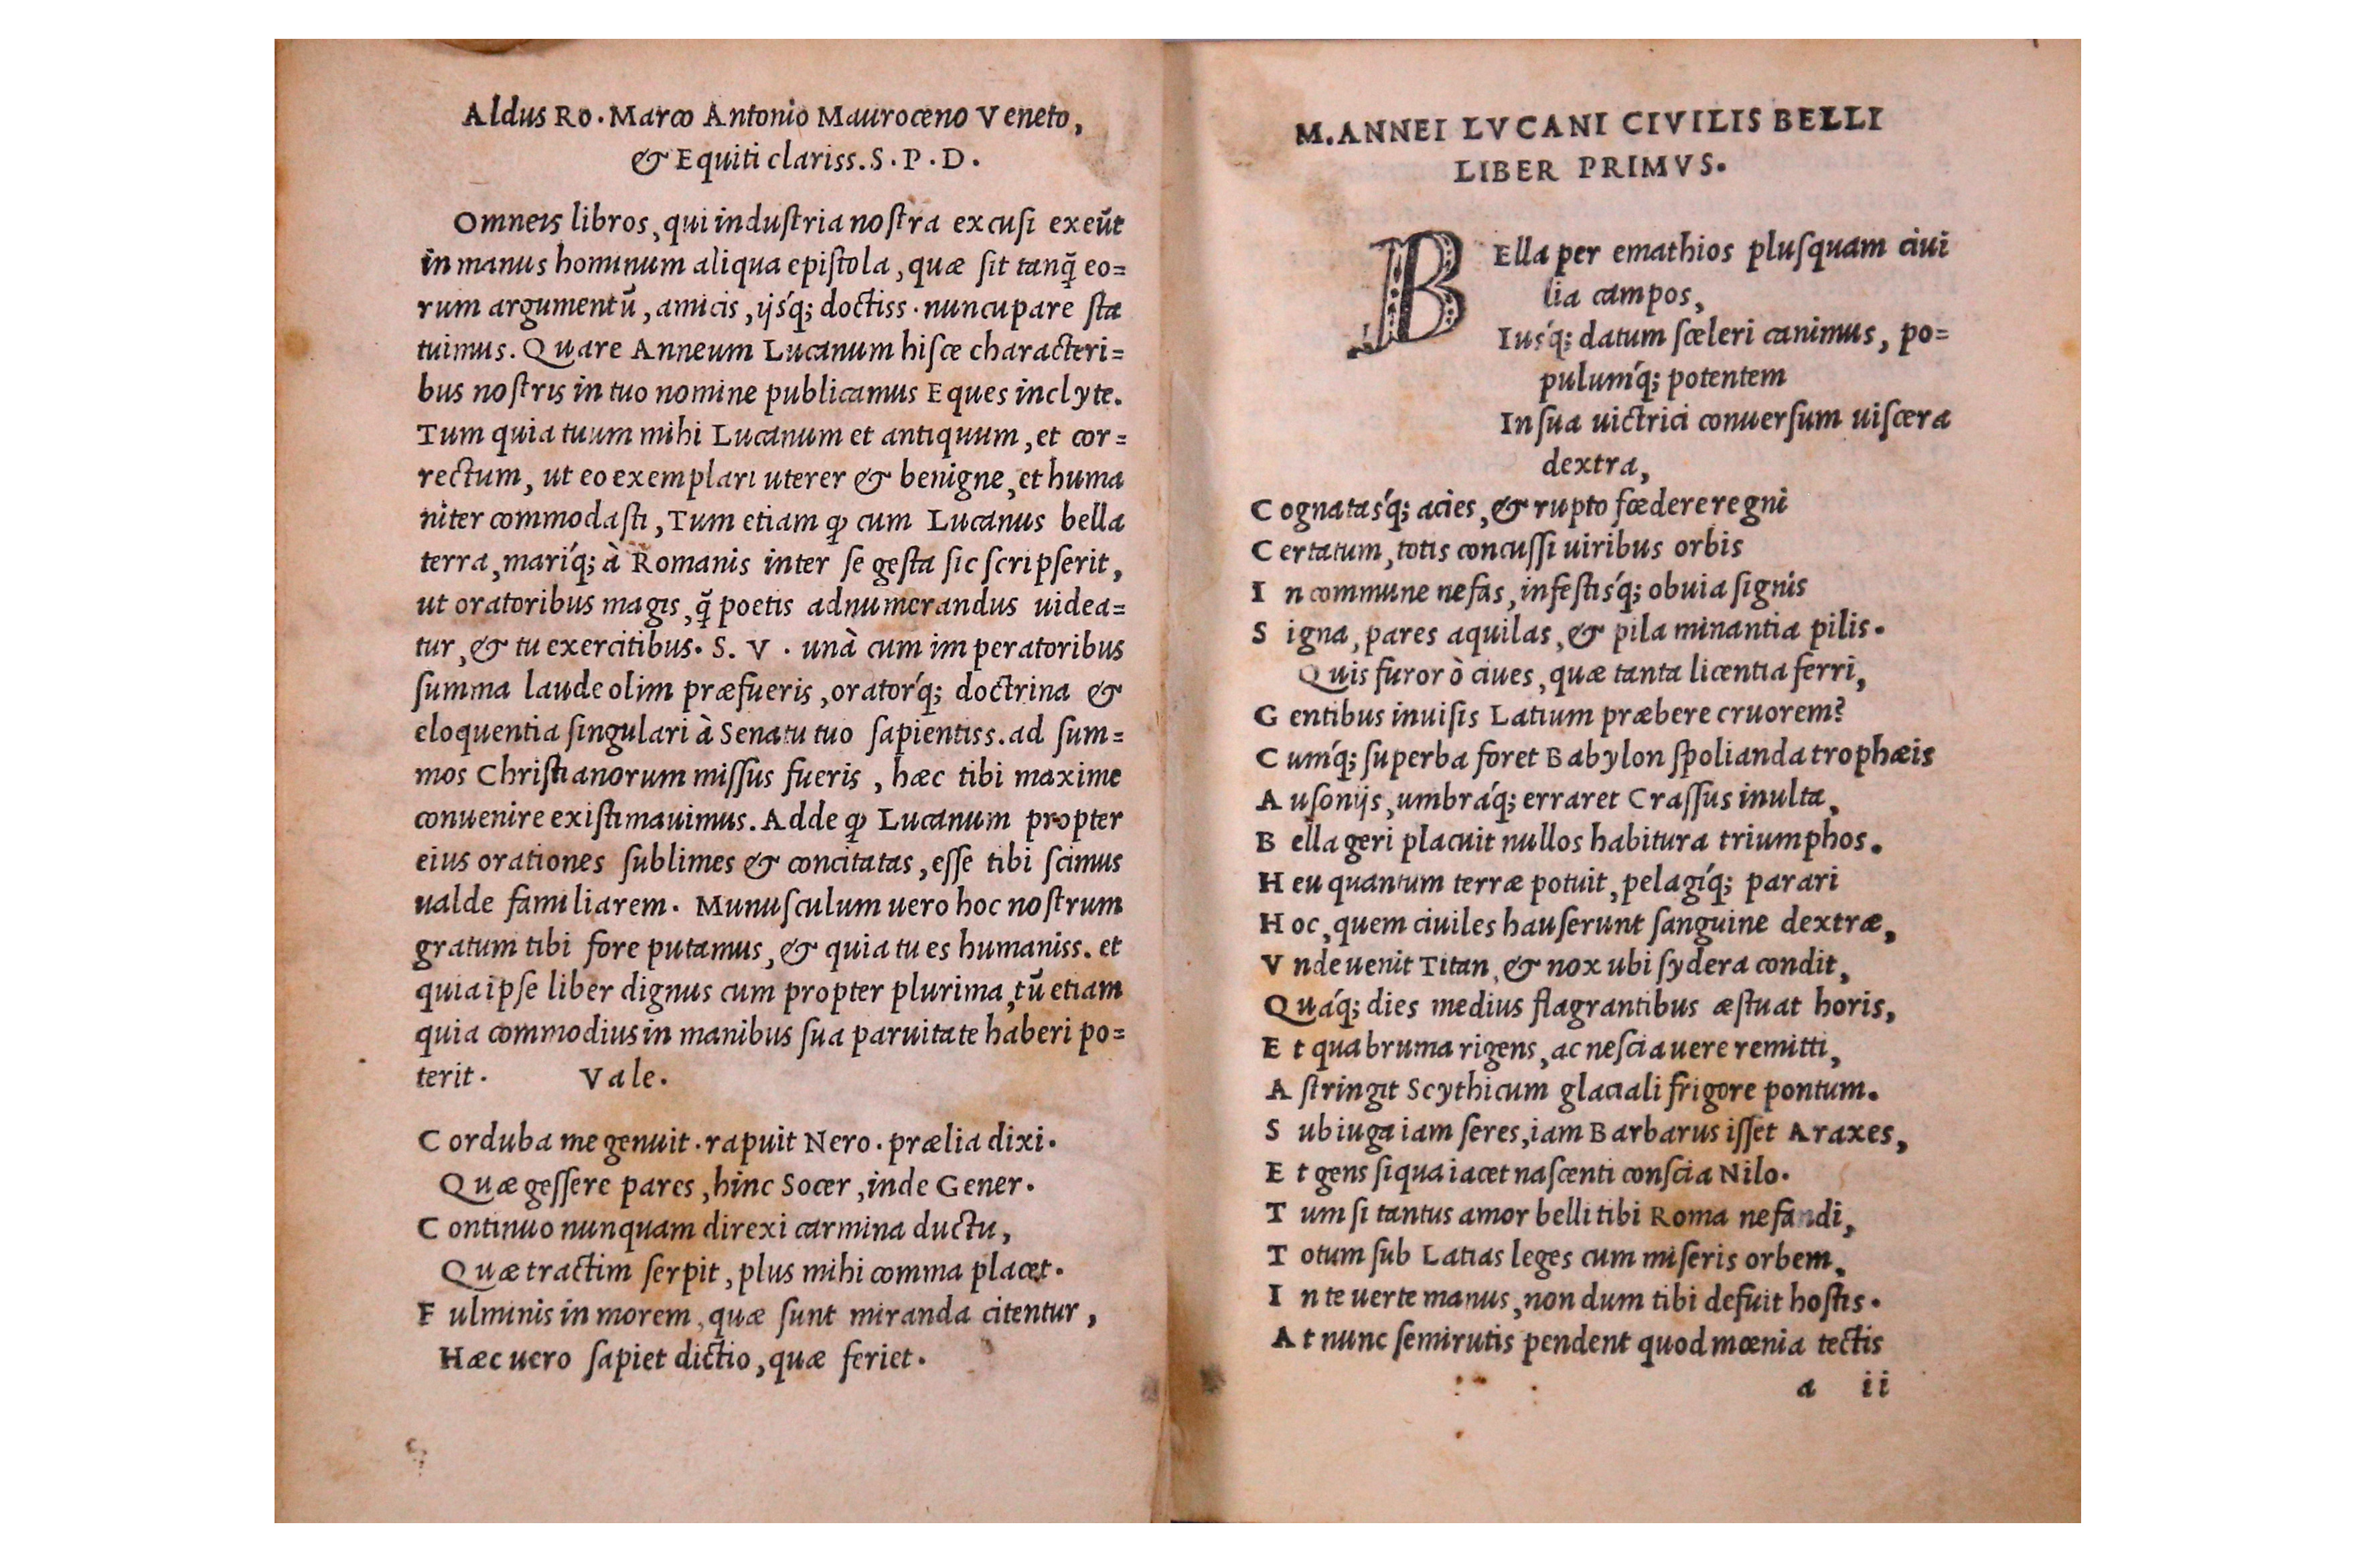 Aldus Ro. Marco Antonio Mauroceno Veneto,
& Equiti clariss. S. P. D.
Omneis libros, qui induſtria noſtra excuſi exeūt
in manus hominum aliqua epiſtola, quæ ſit tanq̃ eo=
rum argumentū, amicis, ijsq́; doctiss. nuncupare ſta
tuimus. Quare Anneum Lucanum hiſce characteri=
bus noſtris in tuo nomine publicamus Eques inclyte.
Tum quia tuum mihi Lucanum et antiquum, et cor=
rectum, ut eo exemplari uterer & benigne, et huma
niter commodaſti, Tum etiam ꝙ cum Lucanus bella
terra, mariq́; à Romanis inter ſe geſta ſic ſcripſerit,
ut oratoribus magis, q̃ poetis adnumerandus uidea=
tur, & tu exercitibus. S. V. unà cum imperatoribus
ſumma laude olim præfueris, oratorq́; doctrina &
eloquentia ſingulari à Senatu tuo ſapientiss. ad ſum=
mos Chriſtianorum miſſus fueris, hæc tibi maxime
conuenire exiſtimauimus. Adde ꝙ Lucanum propter
eius orationes ſublimes & concitatas, eſſe tibi ſcimus
ualde familiarem. Munuſculum uero hoc noſtrum
gratum tibi fore putamus, & quia tu es humaniss. et
quia ipſe liber dignus cum propter plurima, tū etiam
quia commodius in manibus ſua paruitate haberi po=
terit. Vale.
Corduba me genuit. rapuit Nero. prælia dixi.
Quæ geſſere pares, hinc Socer, inde Gener.
Continuo nunquam direxi carmina ductu,
Quæ tractim ſerpit, plus mihi comma placet.
Fulminis in morem, quæ ſunt miranda citentur,
Hæc uero ſapiet dictio, quæ feriet.
M. ANNEI LVCANI CIVILIS BELLI
LIBER PRIMVS.
BElla per emathios pluſquam ciui
lia campos,
Iusq́; datum ſceleri canimus, po=
pulumq́; potentem
In ſua uictrici conuerſum uiſcera
dextra,
Cognatasq́; acies, & rupto fœdere regni
Certatum, totis concuſſi uiribus orbis
In commune nefas, infeſtisq́; obuia ſignis
Signa, pares aquilas, & pila minantia pilis.
Quis furor ò ciues, quæ tanta licentia ferri,
Gentibus inuiſis Latium præbere cruorem?
Cumq́; ſuperba foret Babylon ſpolianda trophæis
Auſonijs, umbráq; erraret Craſſus inulta,
Bella geri placuit nullos habitura triumphos.
Heu quantum terræ potuit, pelagíq; parari
Hoc, quem ciuiles hauſerunt ſanguine dextræ,
Vnde uenit Titan, & nox ubi ſydera condit,
Quáq; dies medius flagrantibus æſtuat horis,
Et qua bruma rigens, ac neſcia uere remitti,
Aſtringit Scythicum glaciali frigore pontum.
Sub iuga iam ſeres, iam Barbarus iſſet Araxes,
Et gens ſiqua iacet naſcenti conſcia Nilo.
Tum ſi tantus amor belli tibi Roma nefandi,
Totum ſub Latias leges cum miſeris orbem,
In te uerte manus, non dum tibi defuit hoſtis.
At nunc ſemirutis pendent quod mœnia tectis
a ii